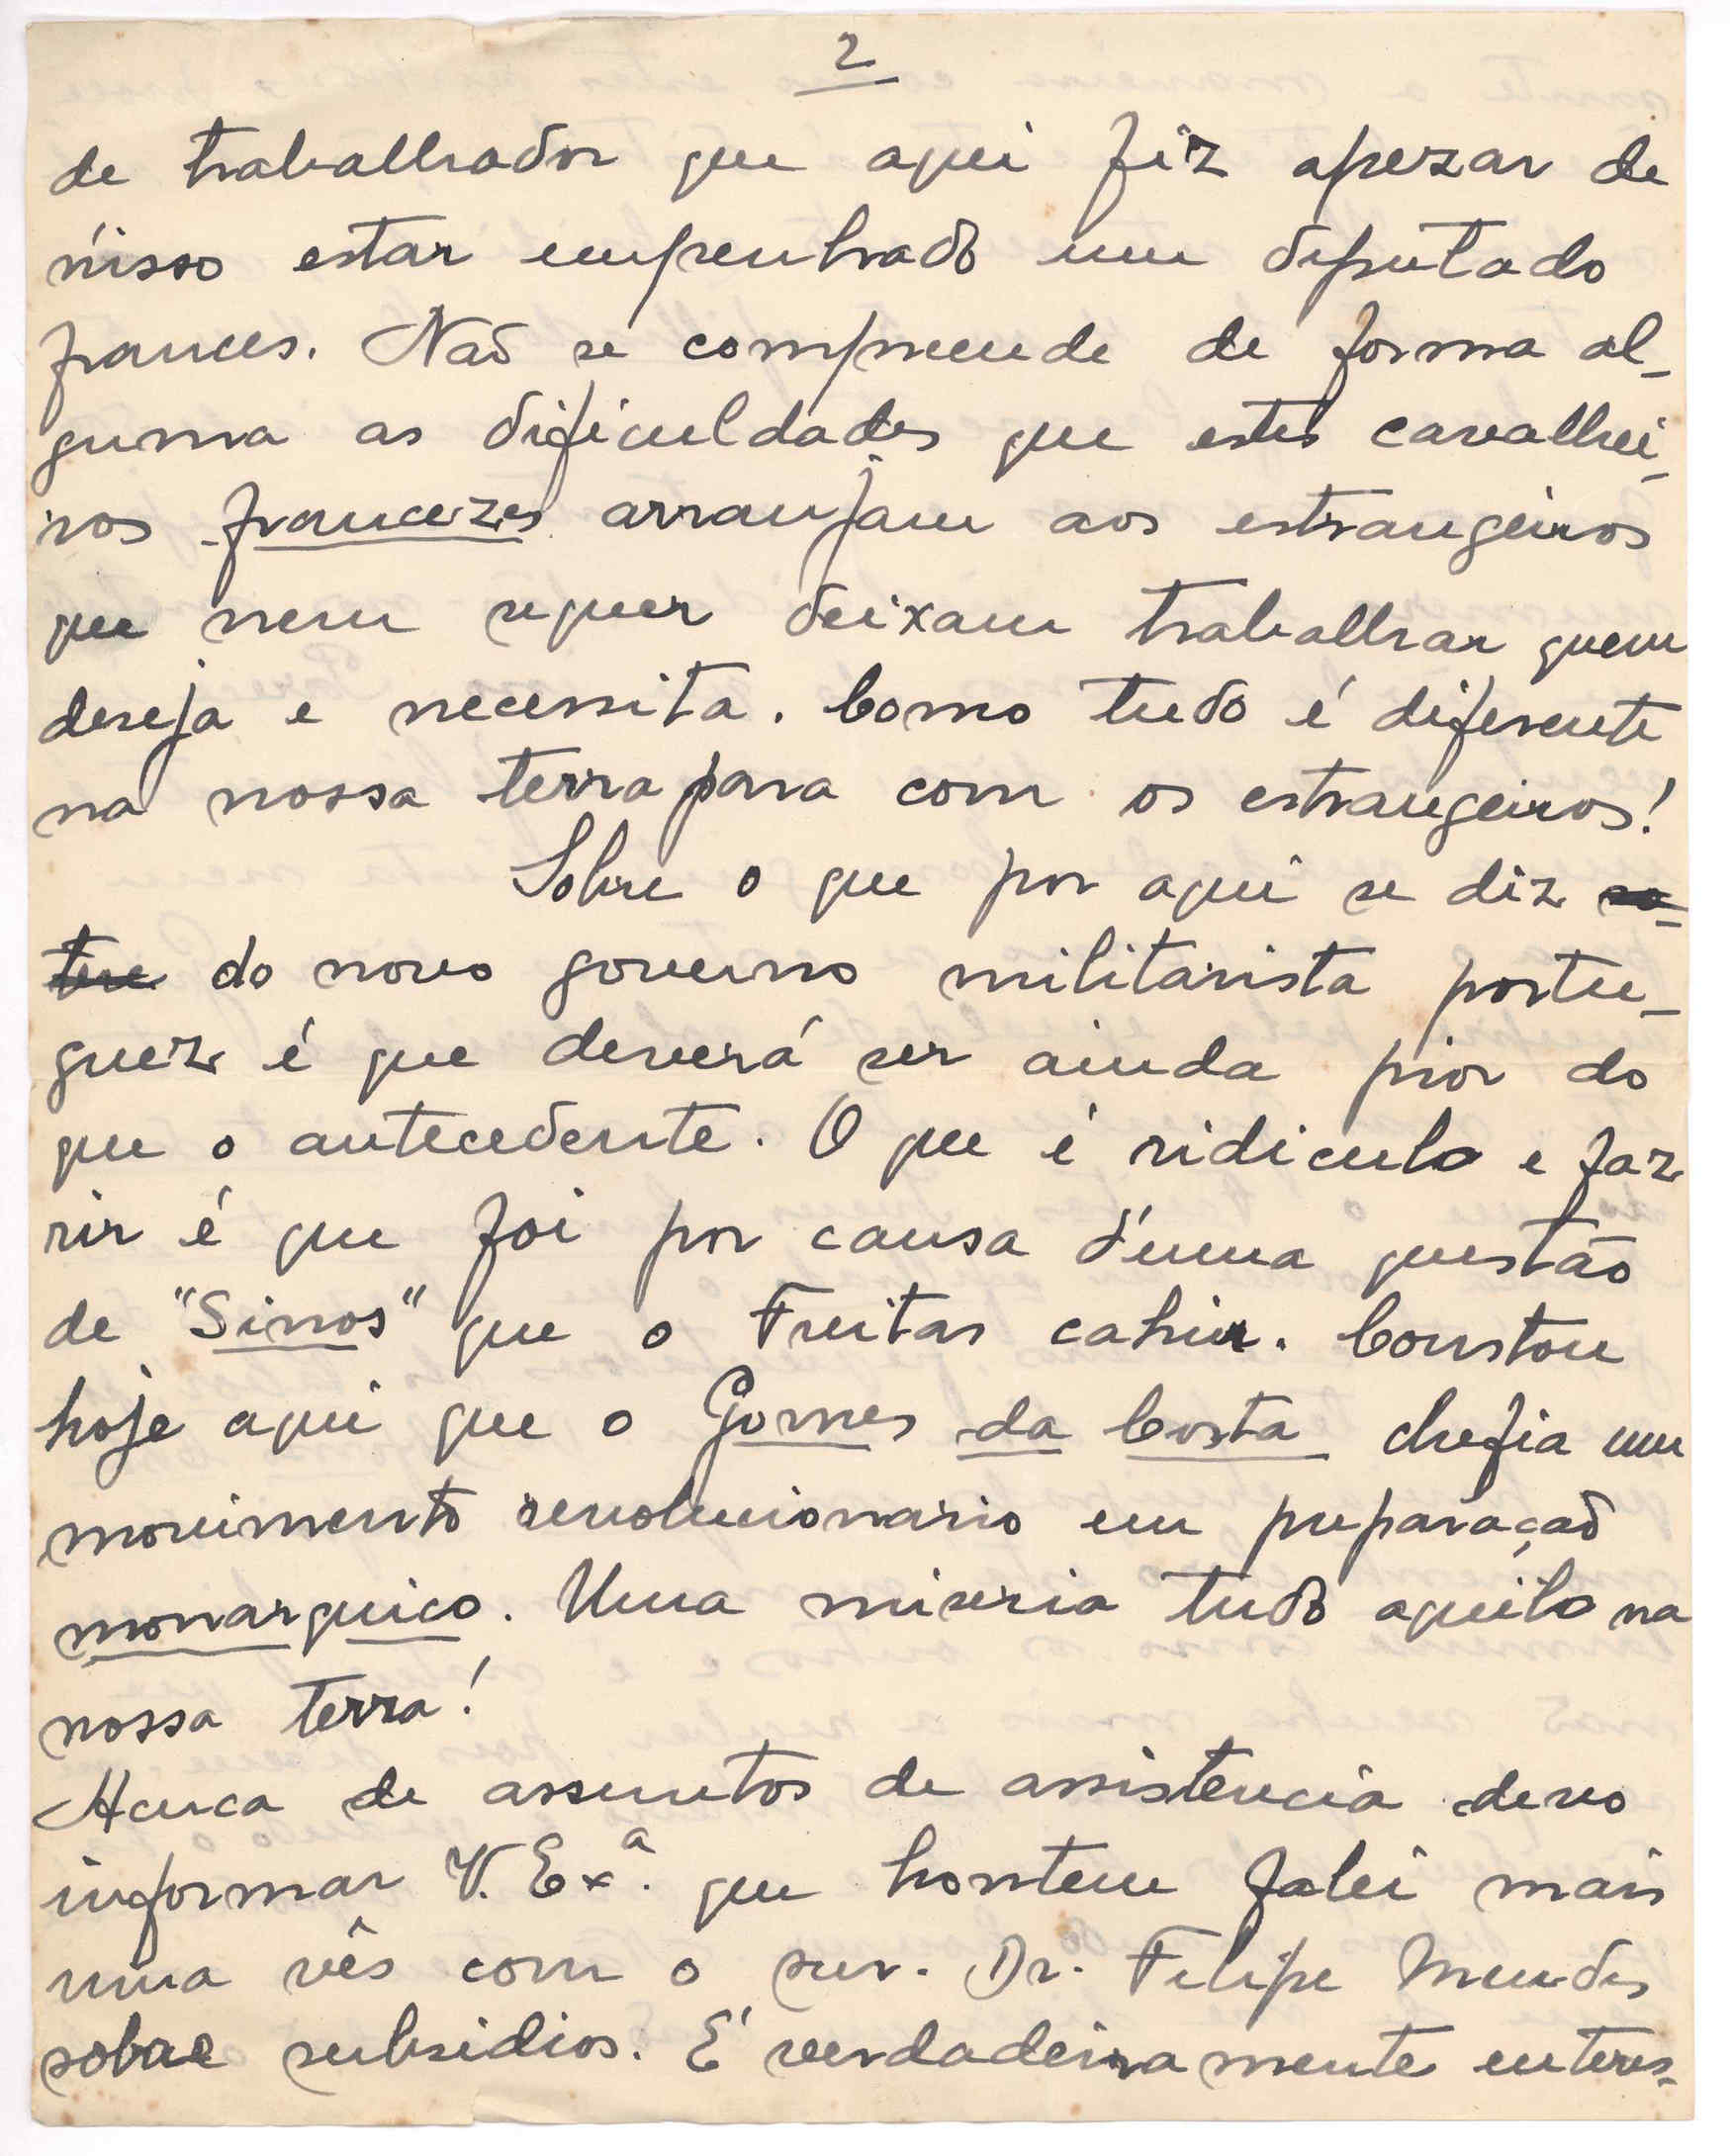 2
de trabalhador que aqui fiz apezar de
nisso estar empenhado um deputado
frances. Naõ se compreende de forma al-
guma as dificuldades que estes cavalhei-
ros francezes arranjam aos estrangeiros
que nem sequer deixam trabalhar quem
deseja e necessita. Como tudo é diferente
na nossa terra para com os estrangeiros!
Sobre o que por aqui se diz so-
bre do novo governo militarista portu-
guez é que deverá ser ainda pior do
que o antecedente. O que é ridiculo e faz
rir é que foi por causa d'uma questão
de "Sinos" que o Freitas cahiu. Constou
hoje aqui que o Gomes da Costa chefia um
movimento revolucionario em preparaçaõ
monarquico. Uma miseria tudo aquilo na
nossa terra!
Acerca de assuntos de assistencia devo
informar V. Exª. que hontem falei mais
uma vês com o snr. Dr. Filipe Mendes
sobre subsidios. É verdadeiramente enteres-